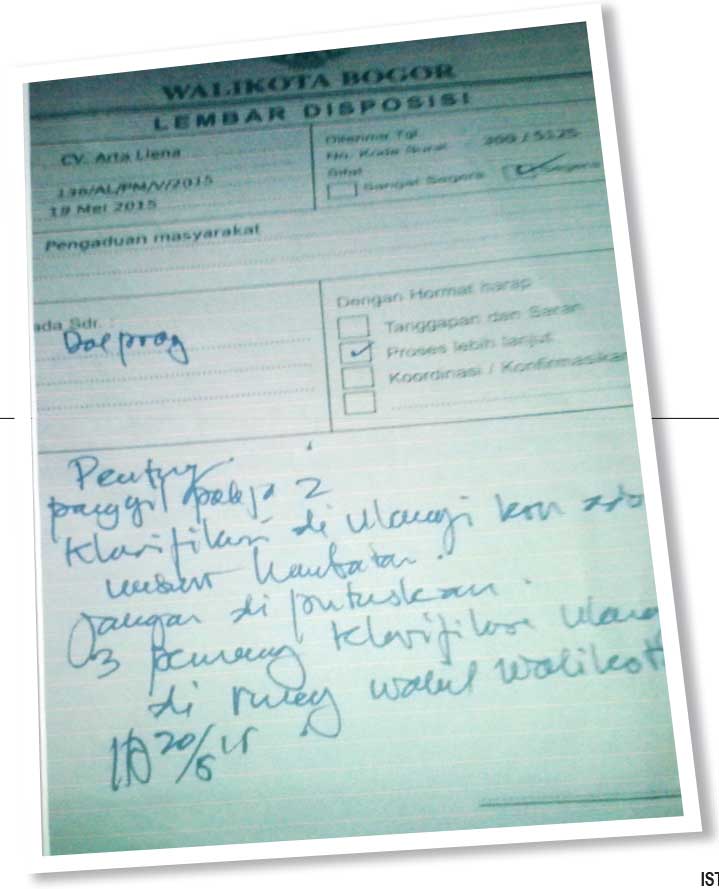 WALIKOTA BOGOR
LEMBAR DISPOSISI
CV. Arta Liena
Diterima Tgl.
No. Kode Surat 300 / 5125
136/AL/PM/V/2015
Sifat
19 Mei 2015
Sangat Segera Segera
Pengaduan masyarakat
ada Sdr. :
Dalprog
Dengan Hormat harap
Tanggapan dan Saran
Proses lebih lanjut
Koordinasi / Konfirmasikan
Penting.
panggil 2
klarifikasi di ulangi krn ada
unsur
Jangan di putuskan.
3 pemenang klarifikasi ulang
di ruang wakil walikota
20/5 15
IST